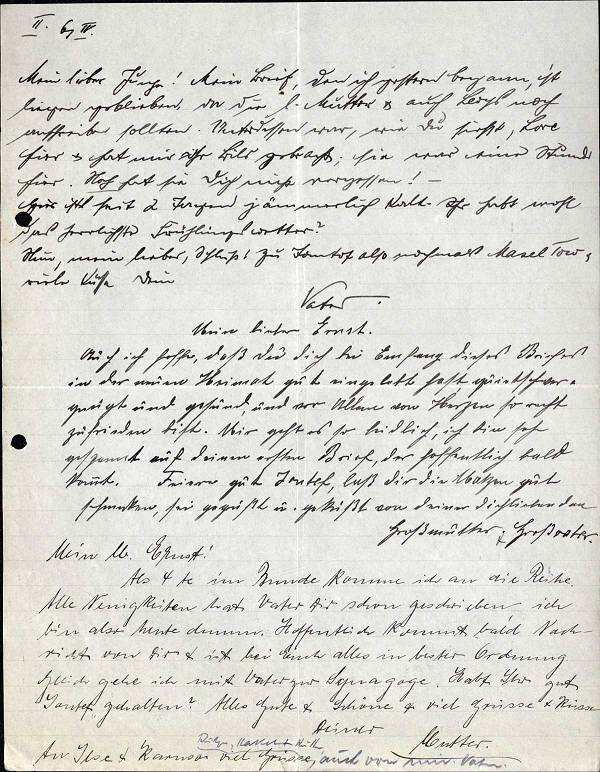 II. 6/IV.
Mein lieber Junge! Mein Brief, den ich gestern begann, ist
liegen geblieben, da die l. Mutter & auch noch
schreiben sollten. Unterdessen war, wie Du siehst, Lore
hier & hat mir ihr Bild gebracht; sie war eine Stunde
hier. Noch hat sie Dich nicht vergessen! —
Hier ist seit 2 Tagen jämmerlich kalt. Ihr habt wohl
das herrlichste Frühlingswetter?
Nun, mein lieber, Schluß! Zu Jontof also nochmals Masel Tow &
viele Küsse Dein
Vater.
Mein lieber Ernst.
Auch ich hoffe, daß du dich bei Empfang dieses Briefes
in der neuen Heimat gut eingelebt hast
und gesund, und vor Allem von Herzen so recht
zufrieden bist. Mir geht es so leidlich, ich bin sehr
gespannt auf deinen ersten Brief, der hoffentlich bald
kommt. Feiere gut Jontef, laß dir die Matzen gut
schmecken, sei gegrüßt u. geküßt von deiner dichliebenden
Großmutter & Großvater.
Mein lb. Ernst!
Als 4 te im Bunde komme ich an die Reihe.
Alle Neuigkeiten hat Vater dir schon geschrieben ich
bin also heute dumm. Hoffentlich kommt bald Nach-
richt von dir & ist bei Euch alles in bester Ordnung
Gleich gehe ich mit Vater zur Synagoge. Habt Ihr gut
Jontef gehalten? Alles Gute & Schöne & viel Grüsse & Küsse
Deiner
Mutter.
An Ilse & viel Grüsse, auch von Vater.